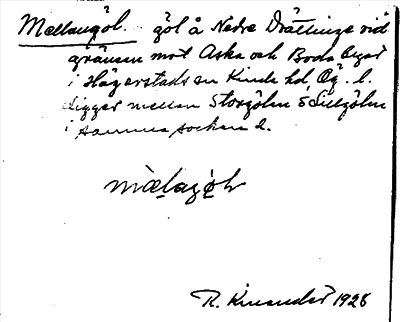 Mellangöl. göl å Nedre Drättinge vid
gränsen mot Aska och Boda ägor
i Hägerstads sn Kinda hd, Ög. l.
Ligger mellan Storgöln o Lillgöln
i samma socken 2.
mælagöln
R. Kinander 1928